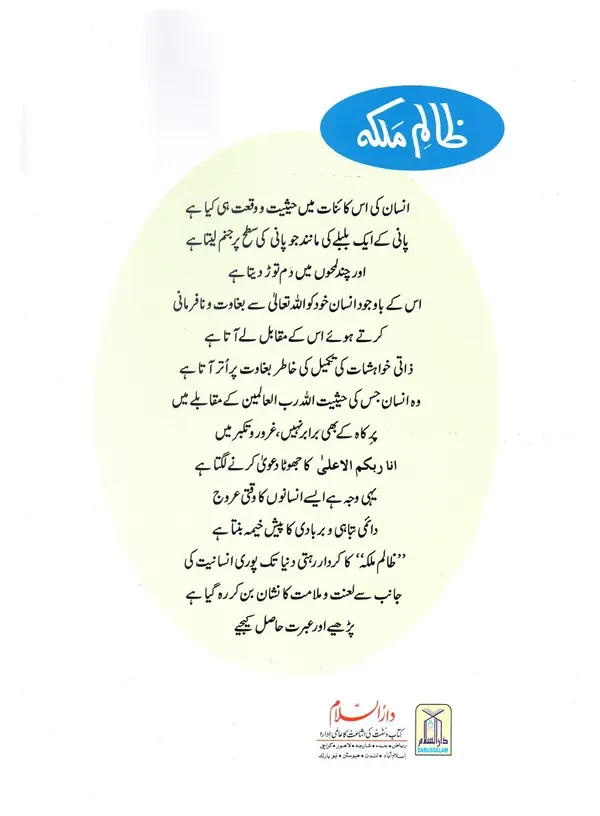 ظالِم مَلکہ
انسان کی اس کائنات میں حیثیت و وقعت ہی کیا ہے
پانی کے ایک بلبلے کی مانند جو پانی کی سطح پر جنم لیتا ہے
اور چند لمحوں میں دَم توڑ دیتا ہے
اس کے باوجود انسان خود کو اللہ تعالیٰ سے بغاوت و نافرمانی
کرتے ہوئے اس کے مقابل لے آتا ہے
ذاتی خواہشات کی تکمیل کی خاطر بغاوت پر اُتر آتا ہے
وہ انسان جس کی حیثیت اللہ رب العالمین کے مقابلے میں
پرِ کاہ کے بھی برابر نہیں، غرور و تکبر میں
انا ربکم الاعلیٰ کا جھوٹا دعویٰ کرنے لگتا ہے
یہی وجہ ہے ایسے انسانوں کا وقتی عروج
دائمی تباہی و بربادی کا پیش خیمہ بنتا ہے
”ظالم ملکہ“ کا کردار رہتی دنیا تک پوری انسانیت کی
جانب سے لعنت و ملامت کا نشان بن کر رہ گیا ہے
پڑھیے اور عبرت حاصل کیجیے
دارُالسّلام
کتاب و سنّت کی اشاعت کا عالمی ادارہ
ریاض • جدہ • شارجہ • لاہور • کراچی
اسلام آباد • لندن • ہیوسٹن • نیو یارک
دارالسلام
DARUSSALAM